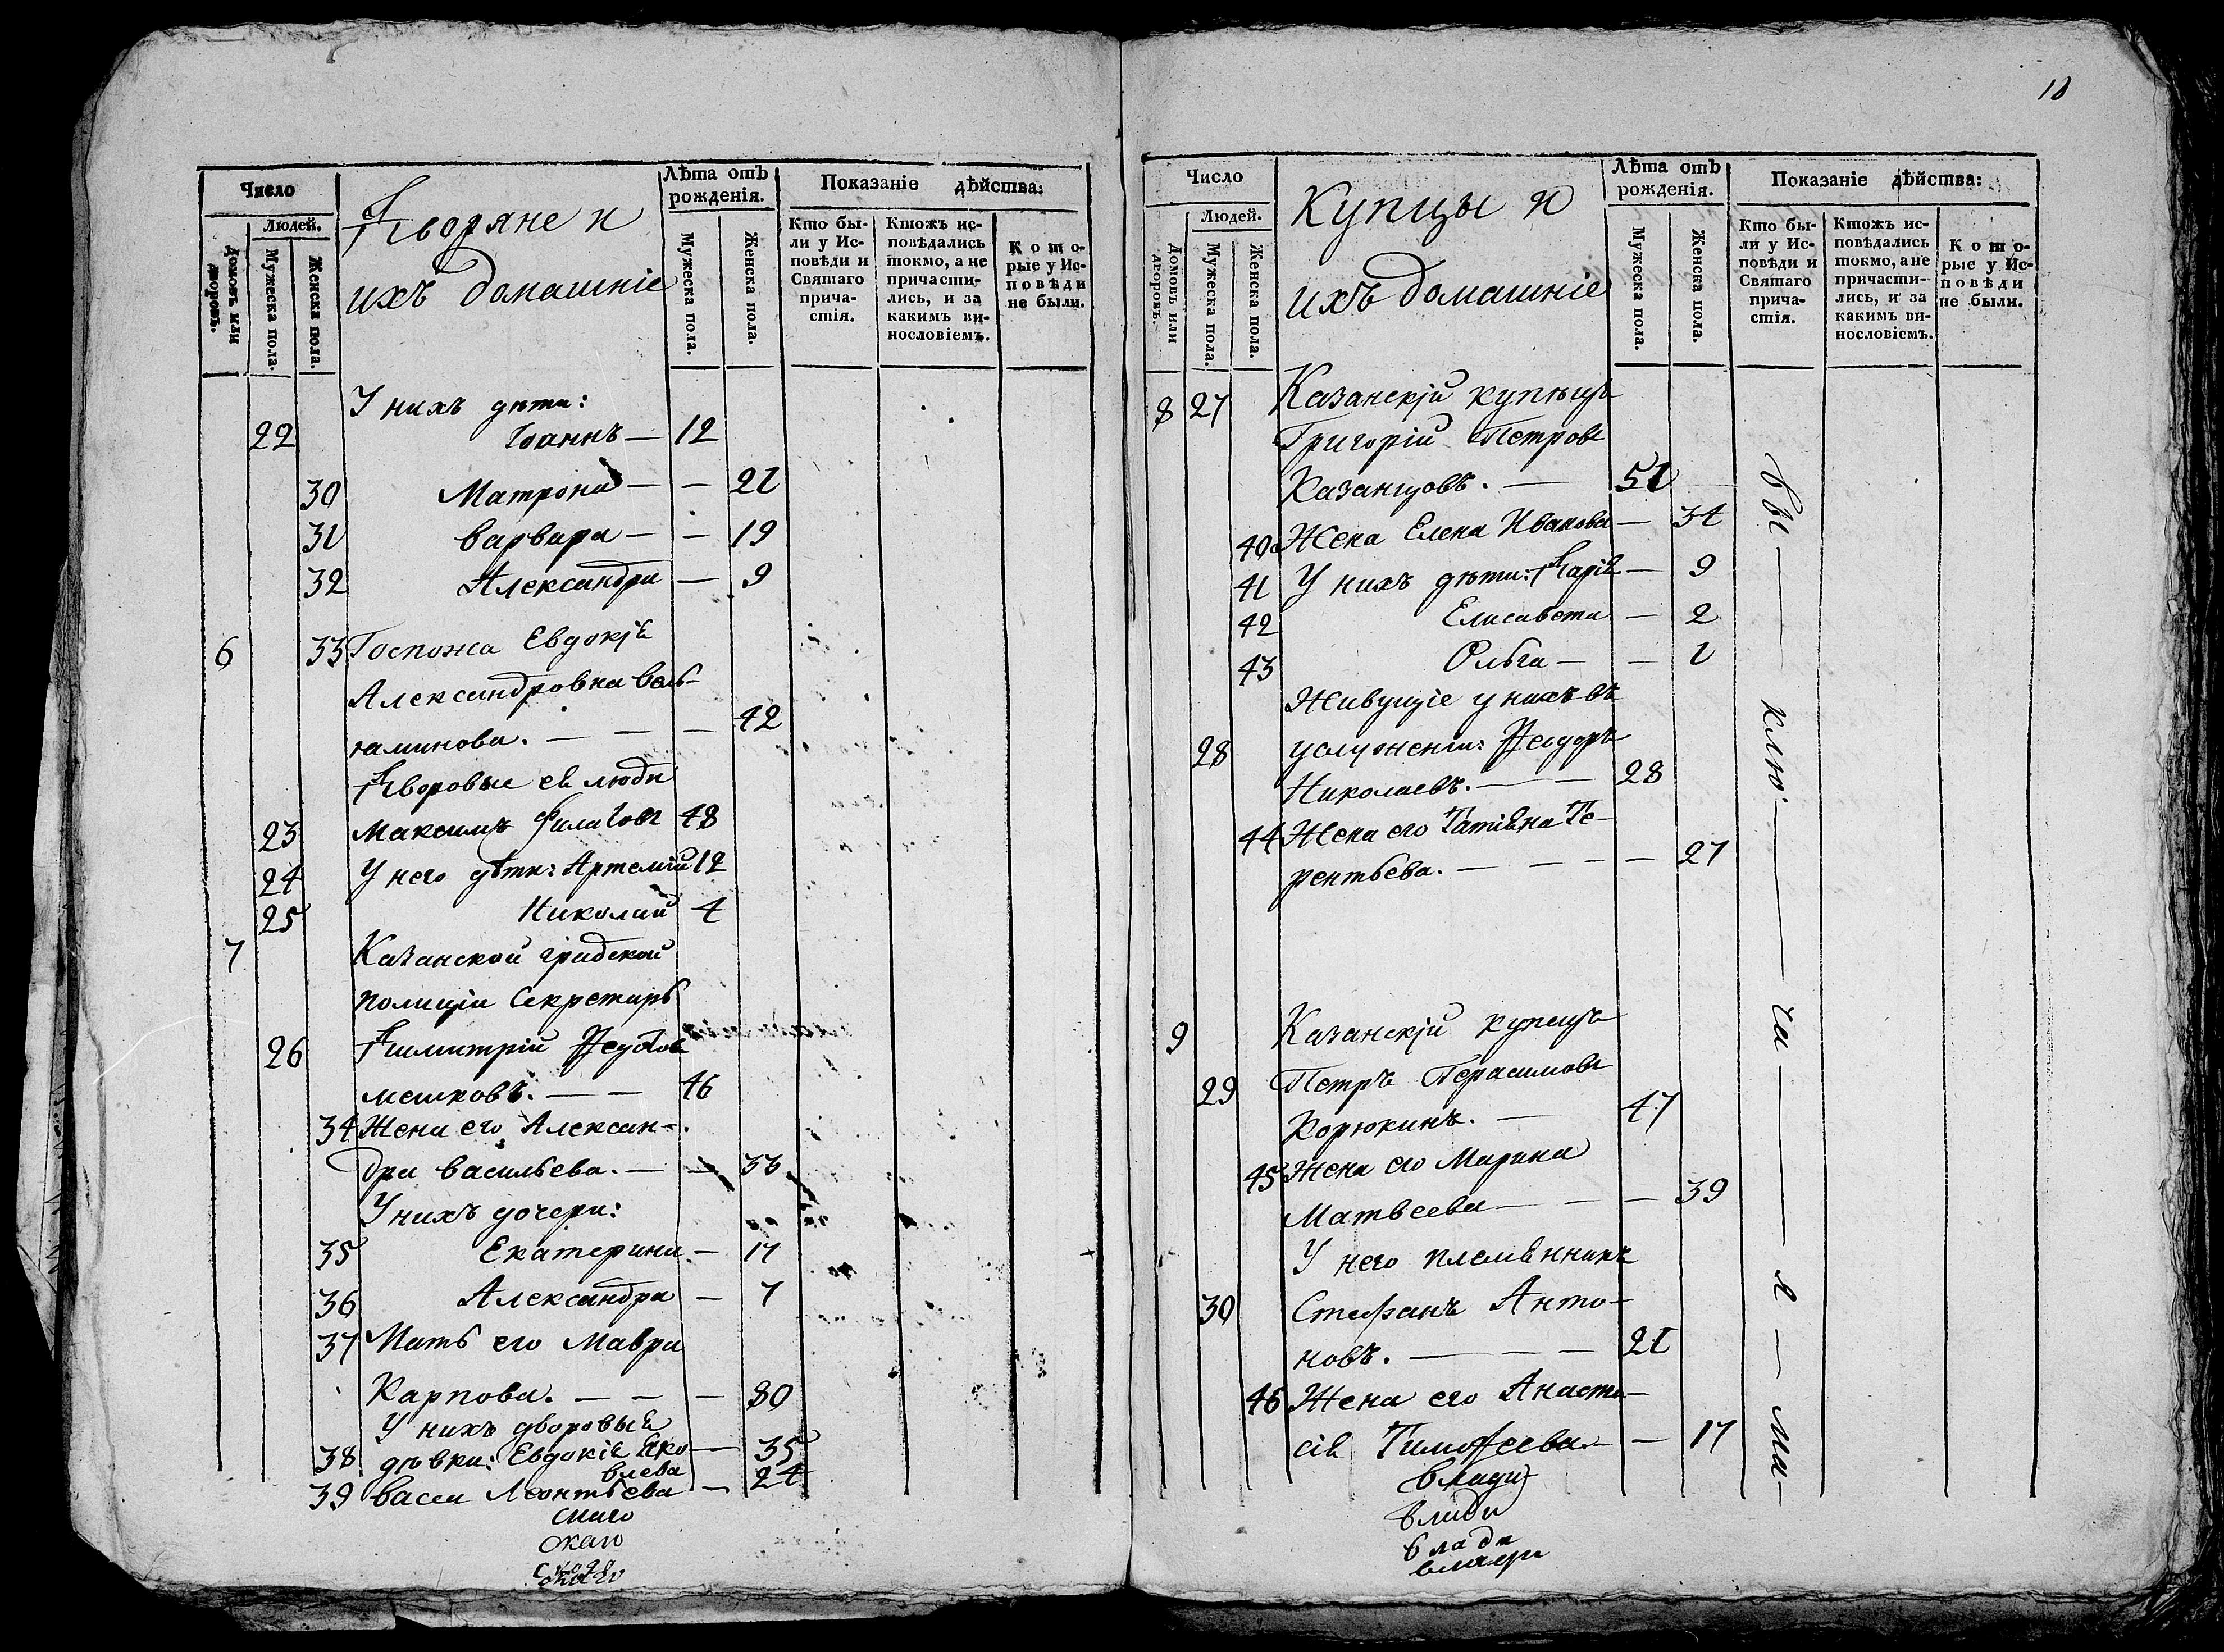 Число
Людей.
Домовъ или дворовъ.
Мужеска пола.
Женска пола.
Дворяне и
ихъ домашніе
Лѣта отъ рожденія.
Мужеска пола.
Женска пола.
Показаніе дѣйства:
Кто бы-
ли у Ис-
повѣди и
Святаго
прича-
стія.
Ктожъ ис-
повѣдались
токмо, а не
причасти-
лись, и за
какимъ ви-
нословіемъ.
Кото-
рые у Ис-
повѣди
не были.
У нихъ дѣти:
22 Іоаннъ — 12
30 Матрона — — 21
31 Варвара — — 19
32 Александра — 9
6 33 Госпожа Евдокія
Александровна Вель-
яминова. — — — 42
Дворовые ея люди
23 Максимъ Филатовъ 48
24 У него дѣти: Артемій 12
25 Николай 4
7 Казанской градской
полиціи Секретарь
26 Димитрій Федотовъ
Мешковъ. — — 46
34 Жена его Алексан-
дра Васильева. — — 33
У нихъ дочери:
35 Екатерина — 17
36 Александра — 7
37 Мать его Мавра
Карпова. — — — 80
У нихъ дворовыя
38 дѣвки: Евдокія Яко — 35
влева
39 Васса Леонтьева — 24
скаго
скаго
18
Число
Людей.
Домовъ или дворовъ.
Мужеска пола.
Женска пола.
Купцы и
ихъ домашніе
Лѣта отъ рожденія.
Мужеска пола.
Женска пола.
Показаніе дѣйства:
Кто бы-
ли у Ис-
повѣди и
Святаго
прича-
стія.
Ктожъ ис-
повѣдались
токмо, а не
причасти-
лись, и за
какимъ ви-
нословіемъ.
Кото-
рые у Ис-
повѣди
не были.
8 27 Казанскій купецъ
Григорій Петровъ
Казанцовъ. — 51
40 Жена Елена Иванова — 34
41 У нихъ дѣти: Дарія — 9
42 Елисавета — 2
43 Ольга — — 1
Живущіе у нихъ въ
28 услуженіи: Ѳеодоръ
Николаевъ. — — 28
44 Жена его Татіяна Те-
рентьева. — — — — 27
9 Казанскій купецъ
29 Петръ Герасимовъ
Корюкинъ. — 47
45 Жена его Марина
Матвеева — — — 39
У него племянникъ
30 Стефанъ Анто-
новъ. — — — 21
46 Жена его Анаста-
сія Тимоѳеева — — 17
влади
влади
влади
вы — клю — ча — я — ма —